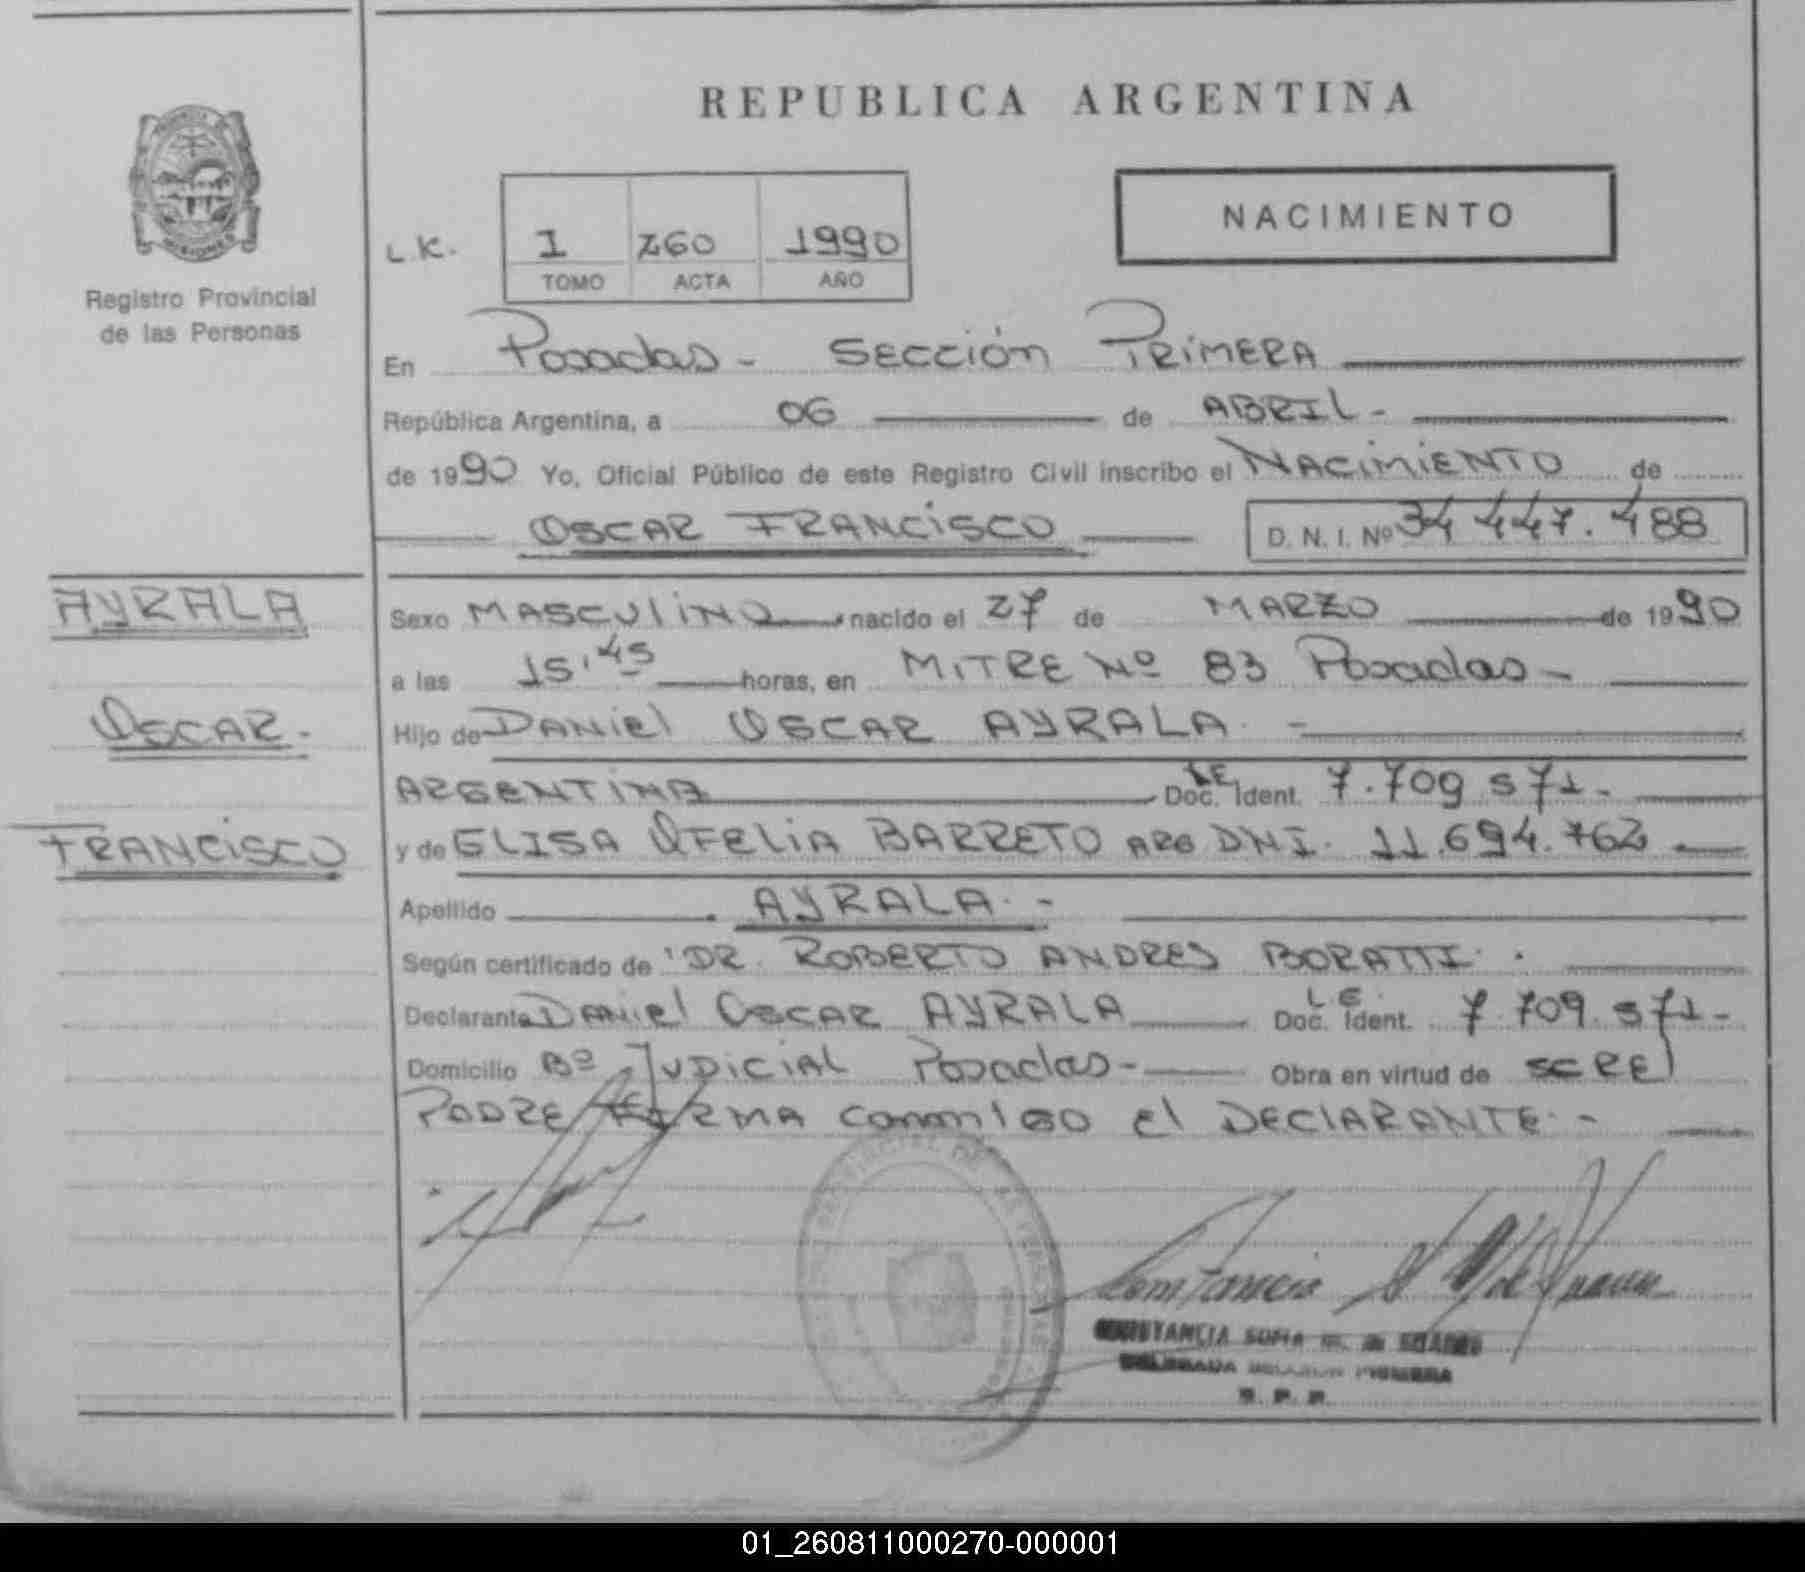 REPUBLICA ARGENTINA
NACIMIENTO
L.K. 1 260 1990
TOMO ACTA AÑO
Registro Provincial
de las Personas
En Posadas - SECCIÓN PRIMERA
República Argentina, a 06 de ABRIL -
de 1990 Yo, Oficial Público de este Registro Civil inscribo el NACIMIENTO de
OSCAR FRANCISCO D. N. I. Nº 34 447.488
AYRALA
OSCAR.
FRANCISCO
Sexo MASCULINO nacido el 27 de MARZO de 1990
a las 15,45 horas, en MITRE Nº 83 Posadas -
Hijo de DANIEL OSCAR AYRALA. -
ARGENTINA Doc. Ident. LE 7.709 571-
y de ELISA OFELIA BARRETO ARG DNI. 11.694.762
Apellido AYRALA. -
Según certificado de DR. ROBERTO ANDRES BORATTI.
Declarante DANIEL OSCAR AYRALA Doc. Ident. L.E. 7.709.571-
Domicilio Bº JUDICIAL Posadas - Obra en virtud de SER EL
PADRE FIRMA conmigo El DECLARANTE. -
CONSTANCIA SOFIA
01_260811000270-000001